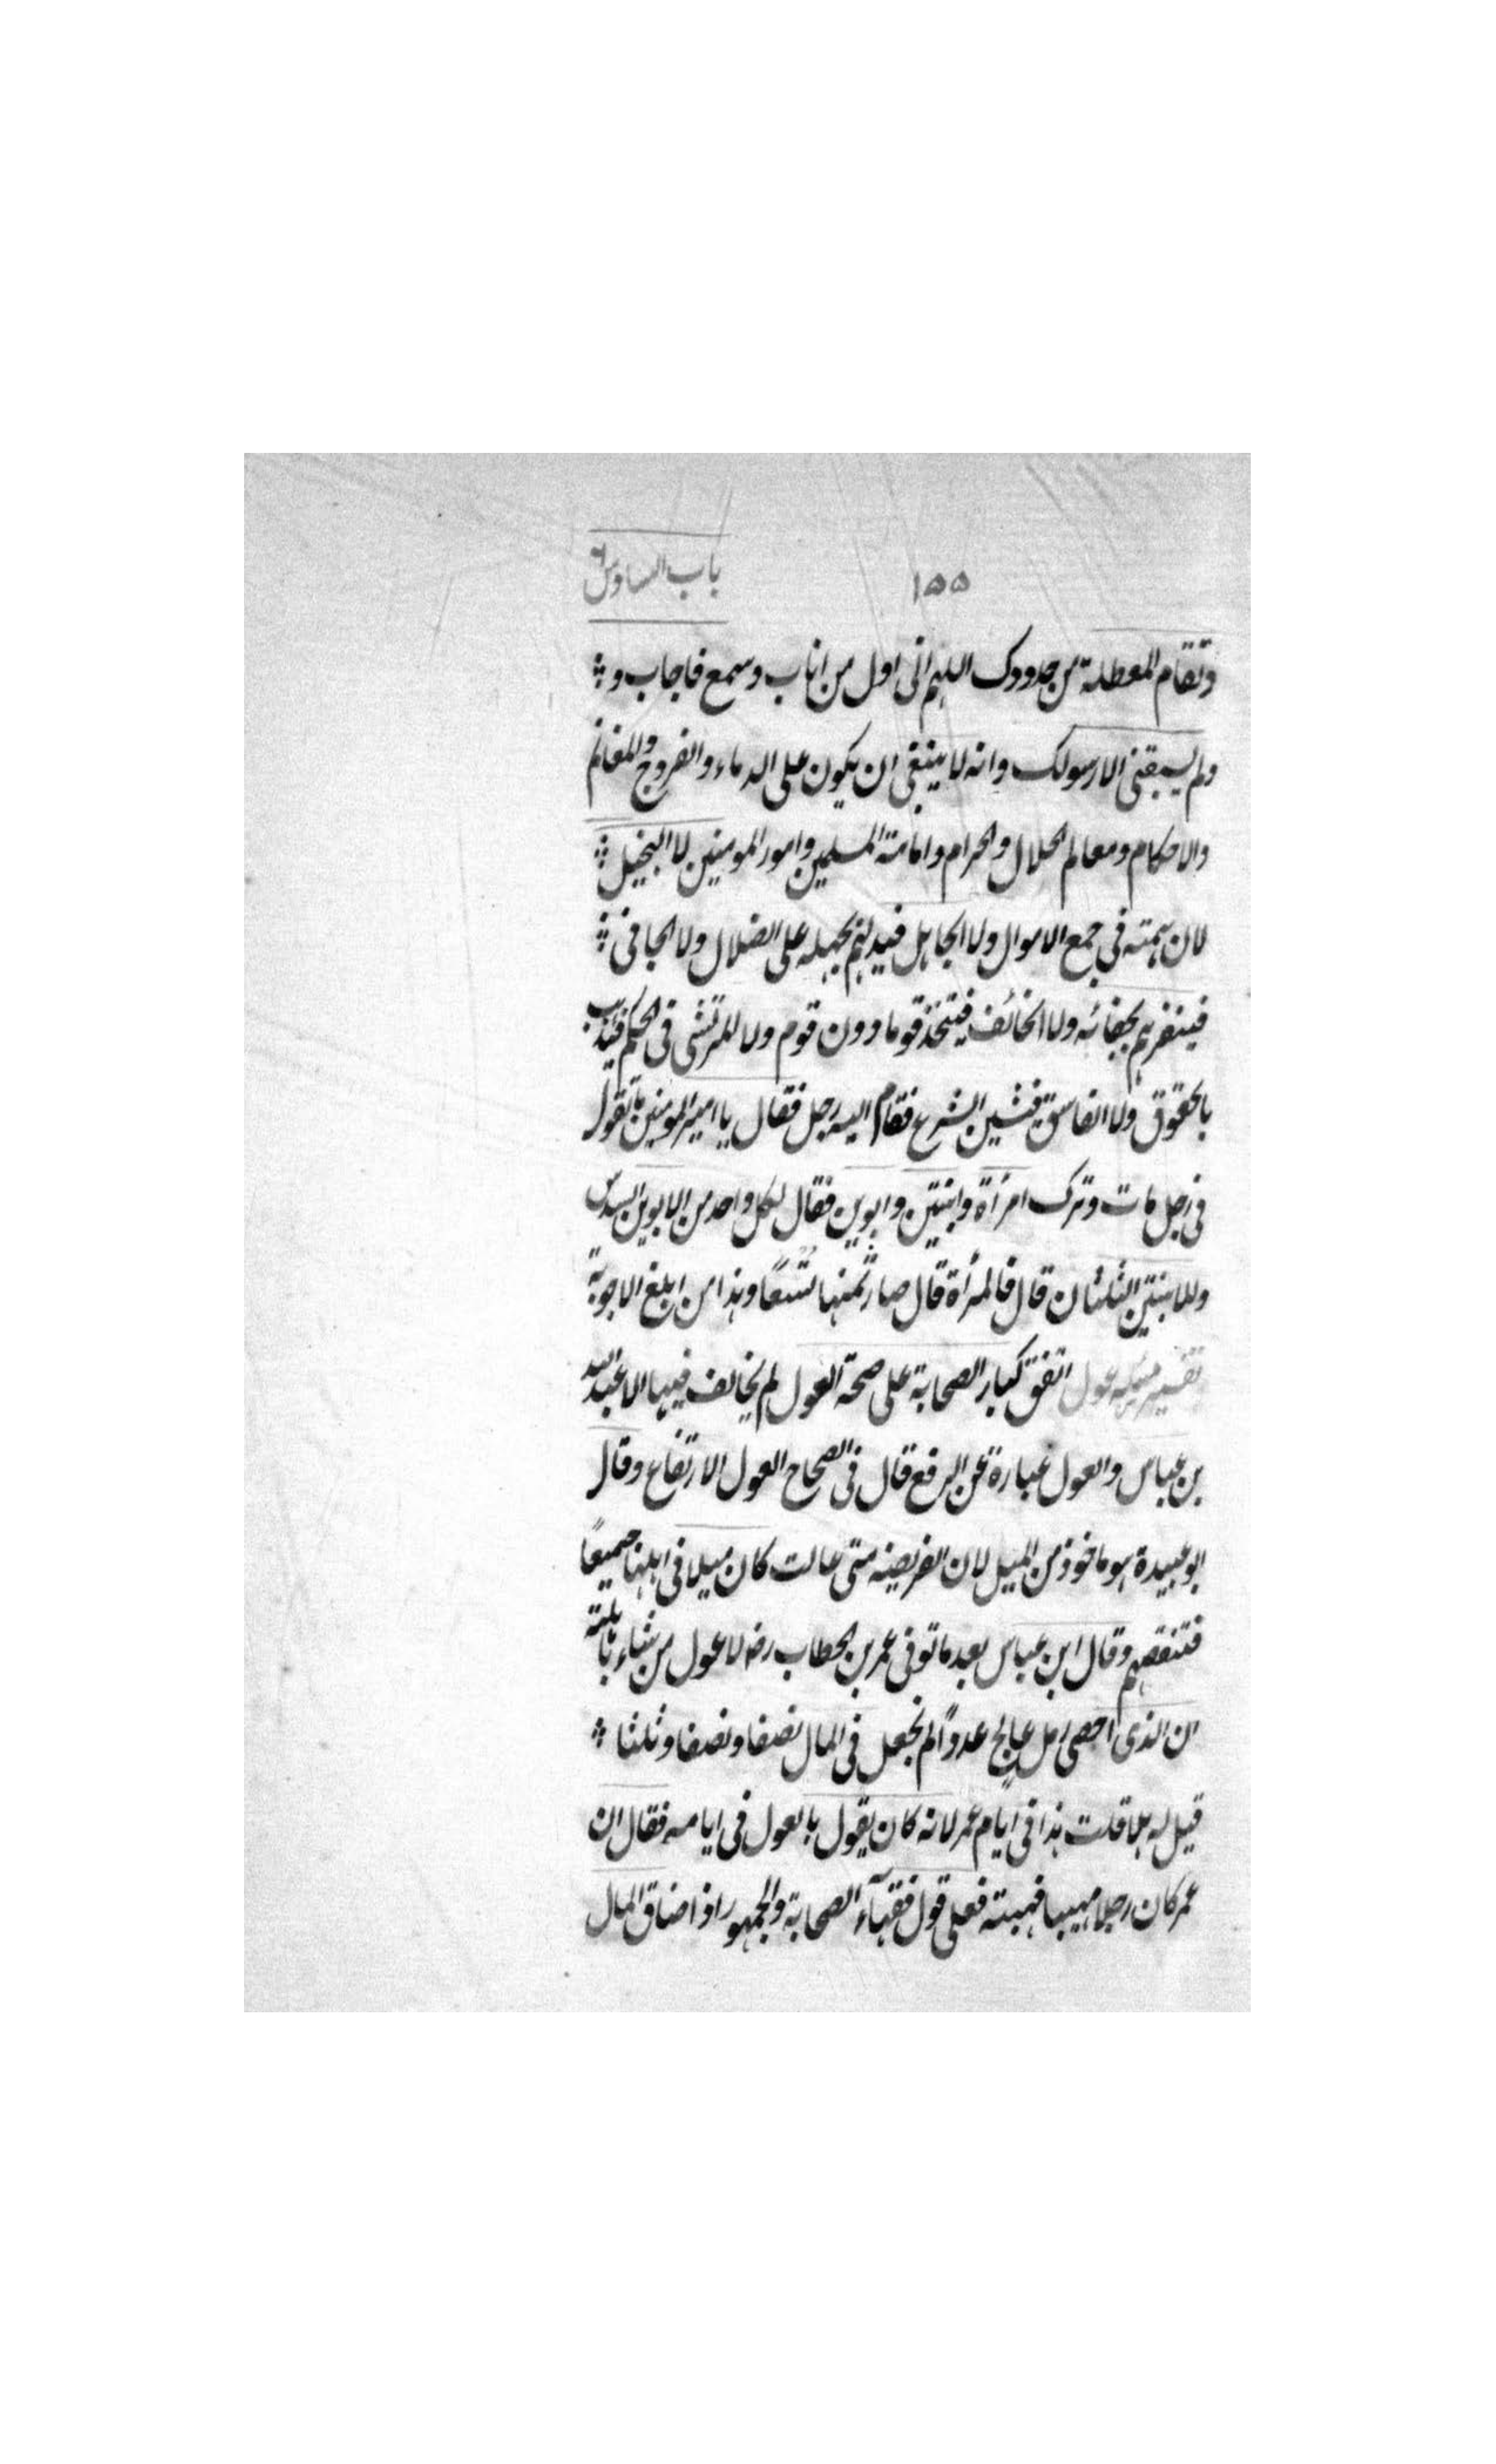 ١٥٥ باب السادس
وتقام المعطلة من حدودك اللهم انى اول من اناب وسمع فاجاب و
ولم يسبقنى الا رسولك وانه لا ينبغى ان يكون على الدماء والفروج والمغانم
والاحكام ومعالم الحلال والحرام وامامة المسلمين وامور المومنين لا البخيل
لان همته فى جمع الاموال ولا الجاهل فيدلهم بجهله على الضلال ولا الجافى
فينفرهم بجفائه ولا الخائف فيتخذ قوما دون قوم ولا المرتشى فى الحكم فيذهب
بالحقوق ولا الفاسق فيشين الشرع فقام اليه رجل فقال يا امير المومنين ما تقول
فى رجل مات وترك امرأة وابنتين وابوين فقال لكل واحد من الابوين السدس
وللابنتين الثلثان قال فالمرأة قال صار ثمنها تسعًا وهذا من ابلغ الاجوبة
تفسير مسئله عول اتفق كبار الصحابة على صحة العول لم يخالف فيها الا عبد الله
بن عباس والعول عبارة عن الرفع قال فى الصحاح العول الارتفاع وقال
ابو عبيدة هو ماخوذ من الميل لان الفريضه متى عالت كان ميلا فى اهلها جميعًا
فتنقصهم وقال ابن عباس بعد ما توفى عمر بن الخطاب رضه لا عول من شاء باهلته
ان الذى احصى رمل عالج عددًا لم يجعل فى المال نصفا ونصفا وثلثا
قيل له هلا قلت هذا فى ايام عمر لانه كان يقول بالعول فى ايامه فقال ان
عمر كان رجلا مهيبا فهبته فعلى قول فقهآء الصحابة والجمهور اذا ضاق المال